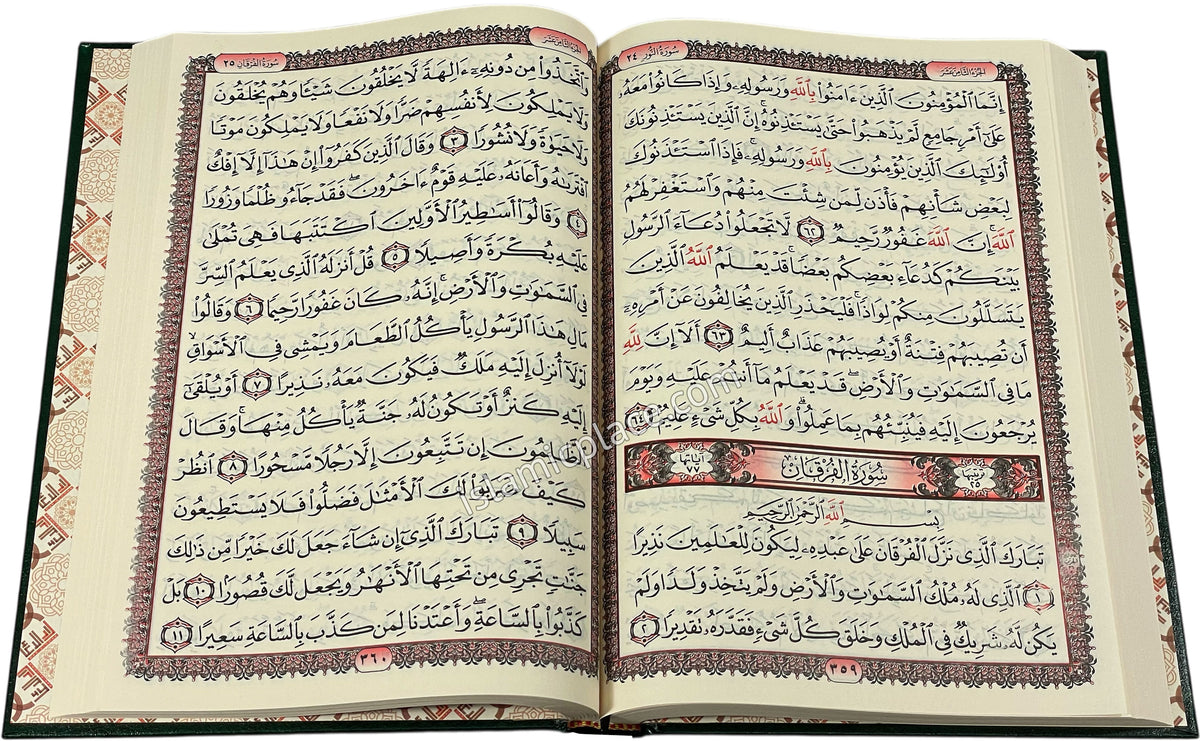 سُورَةُ النُّور ٢٤
الجُزءُ الثَّامِنَ عَشَرَ
إِنَّمَا ٱلْمُؤْمِنُونَ ٱلَّذِينَ ءَامَنُوا۟ بِٱللَّهِ وَرَسُولِهِۦ وَإِذَا كَانُوا۟ مَعَهُۥ
عَلَىٰٓ أَمْرٍ جَامِعٍ لَّمْ يَذْهَبُوا۟ حَتَّىٰ يَسْتَـْٔذِنُوهُ ۚ إِنَّ ٱلَّذِينَ يَسْتَـْٔذِنُونَكَ
أُو۟لَـٰٓئِكَ ٱلَّذِينَ يُؤْمِنُونَ بِٱللَّهِ وَرَسُولِهِۦ ۚ فَإِذَا ٱسْتَـْٔذَنُوكَ
لِبَعْضِ شَأْنِهِمْ فَأْذَن لِّمَن شِئْتَ مِنْهُمْ وَٱسْتَغْفِرْ لَهُمُ
ٱللَّهَ ۚ إِنَّ ٱللَّهَ غَفُورٌ رَّحِيمٌ ٦٢ لَّا تَجْعَلُوا۟ دُعَآءَ ٱلرَّسُولِ
بَيْنَكُمْ كَدُعَآءِ بَعْضِكُم بَعْضًا ۚ قَدْ يَعْلَمُ ٱللَّهُ ٱلَّذِينَ
يَتَسَلَّلُونَ مِنكُمْ لِوَاذًا ۚ فَلْيَحْذَرِ ٱلَّذِينَ يُخَالِفُونَ عَنْ أَمْرِهِۦٓ
أَن تُصِيبَهُمْ فِتْنَةٌ أَوْ يُصِيبَهُمْ عَذَابٌ أَلِيمٌ ٦٣ أَلَآ إِنَّ لِلَّهِ
مَا فِى ٱلسَّمَـٰوَٰتِ وَٱلْأَرْضِ ۖ قَدْ يَعْلَمُ مَآ أَنتُمْ عَلَيْهِ وَيَوْمَ
يُرْجَعُونَ إِلَيْهِ فَيُنَبِّئُهُم بِمَا عَمِلُوا۟ ۗ وَٱللَّهُ بِكُلِّ شَىْءٍ عَلِيمٌۢ ٦٤
ترتيبها ٢٥ سُورَةُ الفُرْقَانِ آياتها ٧٧
بِسْمِ ٱللَّهِ ٱلرَّحْمَـٰنِ ٱلرَّحِيمِ
تَبَارَكَ ٱلَّذِى نَزَّلَ ٱلْفُرْقَانَ عَلَىٰ عَبْدِهِۦ لِيَكُونَ لِلْعَـٰلَمِينَ نَذِيرًا
١ ٱلَّذِى لَهُۥ مُلْكُ ٱلسَّمَـٰوَٰتِ وَٱلْأَرْضِ وَلَمْ يَتَّخِذْ وَلَدًا وَلَمْ
يَكُن لَّهُۥ شَرِيكٌ فِى ٱلْمُلْكِ وَخَلَقَ كُلَّ شَىْءٍ فَقَدَّرَهُۥ تَقْدِيرًا ٢
٣٥٩
الجُزءُ الثَّامِنَ عَشَرَ
سُورَةُ الفُرْقَانِ ٢٥
وَٱتَّخَذُوا۟ مِن دُونِهِۦٓ ءَالِهَةً لَّا يَخْلُقُونَ شَيْـًٔا وَهُمْ يُخْلَقُونَ
وَلَا يَمْلِكُونَ لِأَنفُسِهِمْ ضَرًّا وَلَا نَفْعًا وَلَا يَمْلِكُونَ مَوْتًا
وَلَا حَيَوٰةً وَلَا نُشُورًا ٣ وَقَالَ ٱلَّذِينَ كَفَرُوٓا۟ إِنْ هَـٰذَآ إِلَّآ إِفْكٌ
ٱفْتَرَىٰهُ وَأَعَانَهُۥ عَلَيْهِ قَوْمٌ ءَاخَرُونَ ۖ فَقَدْ جَآءُو ظُلْمًا وَزُورًا
٤ وَقَالُوٓا۟ أَسَـٰطِيرُ ٱلْأَوَّلِينَ ٱكْتَتَبَهَا فَهِىَ تُمْلَىٰ
عَلَيْهِ بُكْرَةً وَأَصِيلًا ٥ قُلْ أَنزَلَهُ ٱلَّذِى يَعْلَمُ ٱلسِّرَّ
فِى ٱلسَّمَـٰوَٰتِ وَٱلْأَرْضِ ۚ إِنَّهُۥ كَانَ غَفُورًا رَّحِيمًا ٦ وَقَالُوا۟
مَالِ هَـٰذَا ٱلرَّسُولِ يَأْكُلُ ٱلطَّعَامَ وَيَمْشِى فِى ٱلْأَسْوَاقِ ۙ
لَوْلَآ أُنزِلَ إِلَيْهِ مَلَكٌ فَيَكُونَ مَعَهُۥ نَذِيرًا ٧ أَوْ يُلْقَىٰٓ
إِلَيْهِ كَنزٌ أَوْ تَكُونُ لَهُۥ جَنَّةٌ يَأْكُلُ مِنْهَا ۚ وَقَالَ
ٱلظَّـٰلِمُونَ إِن تَتَّبِعُونَ إِلَّا رَجُلًا مَّسْحُورًا ٨ ٱنظُرْ
كَيْفَ ضَرَبُوا۟ لَكَ ٱلْأَمْثَـٰلَ فَضَلُّوا۟ فَلَا يَسْتَطِيعُونَ
سَبِيلًا ٩ تَبَارَكَ ٱلَّذِىٓ إِن شَآءَ جَعَلَ لَكَ خَيْرًا مِّن ذَٰلِكَ
جَنَّـٰتٍ تَجْرِى مِن تَحْتِهَا ٱلْأَنْهَـٰرُ وَيَجْعَل لَّكَ قُصُورًۢا ١٠ بَلْ
كَذَّبُوا۟ بِٱلسَّاعَةِ ۖ وَأَعْتَدْنَا لِمَن كَذَّبَ بِٱلسَّاعَةِ سَعِيرًا ١١
٣٦٠
islamicplace.com